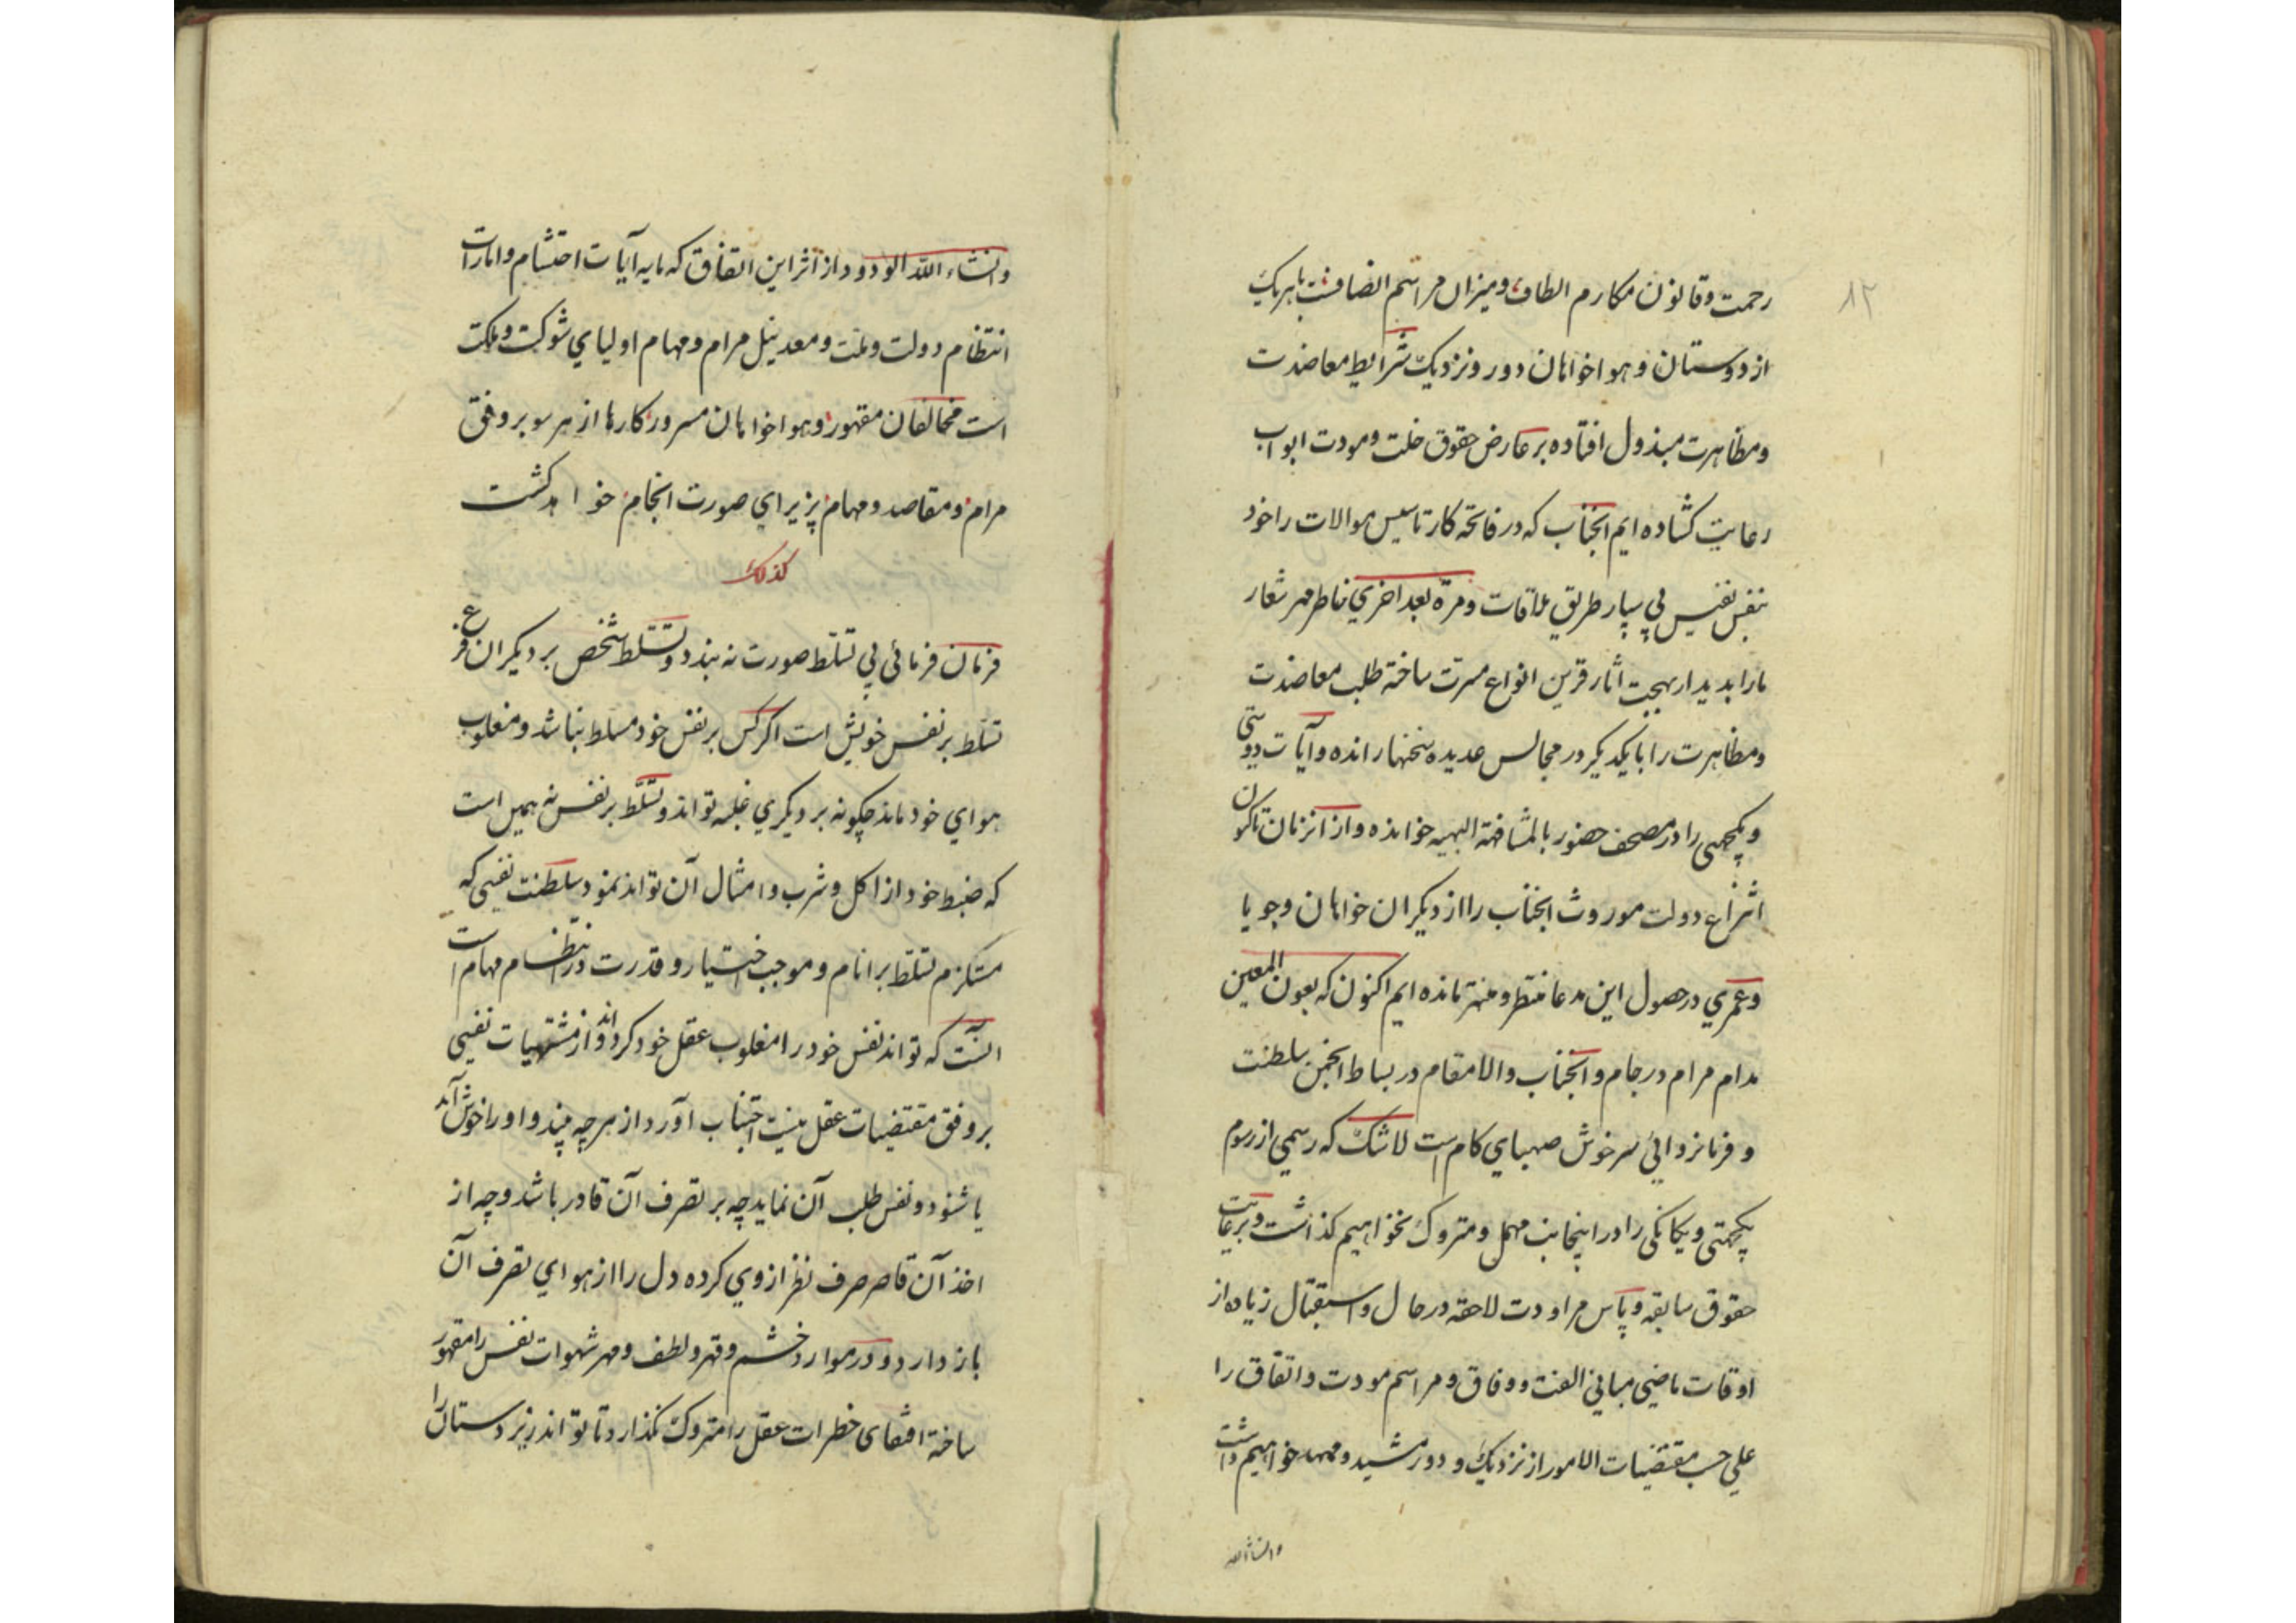 ۸۲
رحمت و قانون مکارم الطاف و میزان مراسم انصافست با هر یک
از دوستان و هواخواهان دور و نزدیک شرایط معاضدت
و مظاهرت مبذول افتاده بر عارض حقوق خلت و مودت ابواب
رعایت کشاده ایم انجناب که در فاتحه کار تاسیس موالات را خود
بنفس نفیس پی سپار طریق ملاقات و مرة بعد اخری خاطر مهر شعار
ما را بدیدار بهجت اثار قرین انواع مسرت ساخته طلب معاضدت
و مظاهرت را با یکدیکر در مجالس عدیده سخنها رانده و آیات دوستی
و یکجهتی را در مصحف حضور بالمشافهة البهیه خوانده و از انزمان تاکنون
انتزاع دولت موروث انجناب را از دیکران خواهان و جویا
و عمری در حصول این مدعا منتظر و منتهز مانده ایم اکنون که بعون المعین
مدام مرام در جام و انجناب والامقام در بساط انجمن سلطنت
و فرمانروائی سرخوش صهبای کام است لاشک که رسمی از رسوم
یکجهتی و یکانکی را در اینجانب مهمل و متروک نخواهیم کذاشت و برعایت
حقوق سابقه و پاس مراودت لاحقه در حال و استقبال زیاده از
اوقات ماضی مبانی الفت و وفاق و مراسم مودت و اتفاق را
علی حسب مقتضیات الامور از نزدیک و دور مشید و ممهد خواهیم داشت
و انشاءالله
و انشاء الله الودود از اثر این اتفاق که مایه آیات احتشام و امارات
انتظام دولت و ملت و معد نیل مرام و مهام اولیای شوکت و ملکت
است مخالفان مقهور و هواخواهان مسرور کارها از هر سو بر وفق
مرام و مقاصد و مهام پزیرای صورت انجام خواهد کشت
کذلک
فرمان فرمائی بی تسلط صورت نه بندد و تسلط شخص بر دیکران فرع
تسلط بر نفس خویش است اکر کس بر نفس خود مسلط نباشد و مغلوب
هوای خود ماند چکونه بر دیکری غلبه تواند و تسلط بر نفس نه همین است
که ضبط خود از اکل و شرب و امثال آن تواند نمود سلطنت نفسی که
مستلزم تسلط بر انام و موجب اختیار و قدرت در انتظام مهام است
انست که تواند نفس خود را مغلوب عقل خود کرداند و از مشتهیات نفسی
بر وفق مقتضیات عقل بنیت اجتناب آورد از هر چه بیند و او را خوش آید
یا شنود و نفس طلب آن نماید چه بر تصرف آن قادر باشد و چه از
اخذ آن قاصر صرف نظر از وی کرده دل را از هوای تصرف آن
باز دارد و در موارد خشم و قهر و لطف و مهر شهوات نفس را مقهور
ساخته اقتفای خطرات عقل را متروک نکذارد تا تواند زیردستان را